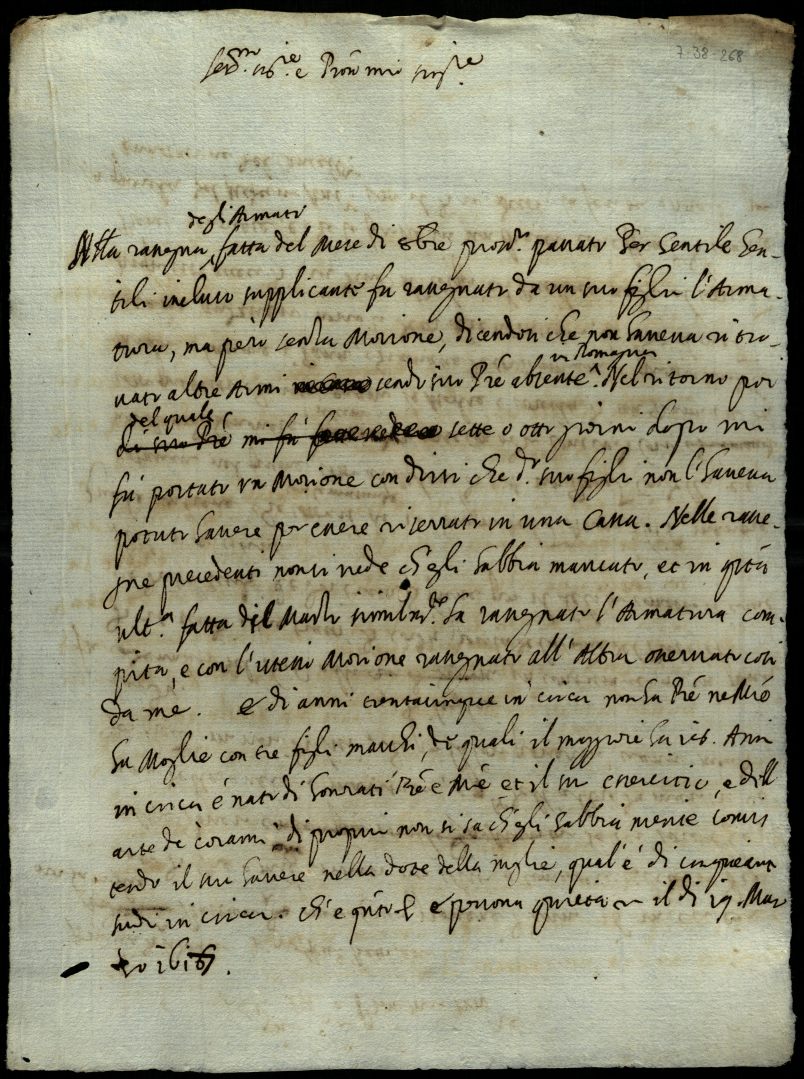 7-38-268
Ser.mo sig.re e Prōn mio sing.re
degli Armati
Nella rasegna, fatta del Mese di 8bre pross.o passato Per Gentile Gen-
tili incluso supplicante fu rassegnato da un suo figlio l'Arma-
tura, ma però senza Morione, dicendosi che non haveva ritro-
in Romagna
vato altre Armi sendo suo Prē absente. Nel ritorno poi
del quale
di suo Prē mi fú sette o otto giorni dopo mi
fú portato un Morione con dirsi che d.o suo figlio non l'haveva
potuto havere per essere riserrato in una Cassa. Nelle rasse-
gne precedenti non si vede ch'egli habbia mancato, et in q̄sta
ult.a fatta del Marzo ha rassegnato l'Armatura com-
pita, e con l'istesso Morione rassegnato all'Altra osservato così
da me. è di anni trentacinque in circa non ha Prē ne Mrē
ha Moglie con tre figli maschi, de quali il maggiore ha 16. Anni
in circa é nato di honorati Prē e Mrē et il suo esercitio, e dell
arte de corami, di proprio non si sa ch'egli habbia niente consis
tendo il suo havere nella dote della moglie, qual'é di cinquanta
scudi in circa. ch'é q̄to è persona quieta il di 19. Mar
zo 1616.